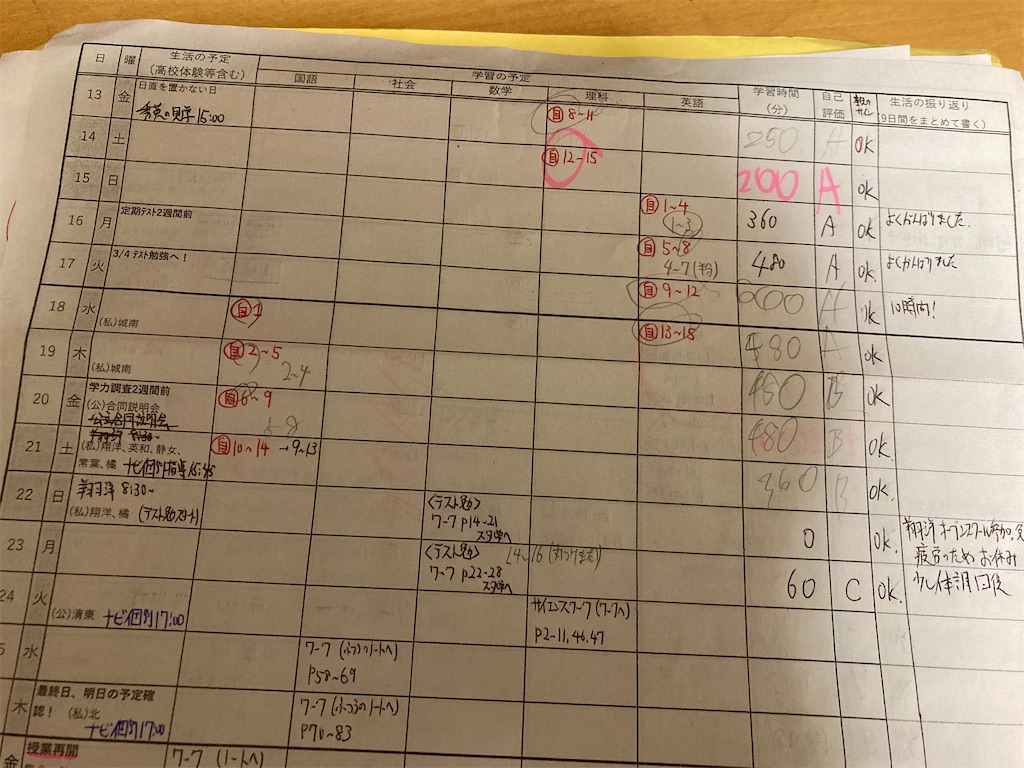 日 曜 生活の予定 学習の予定 学習時間 自己 生活の振り返り
(高校体験等含む) 国語 社会 数学 理科 英語 (分) 評価 サイン (9日間をまとめて書く)
13 金 日直を置かない日
見学 15:00 自 8~11 250 A ok
14 土 自 12-15 200 A ok
15 日 自 1~4 360 A ok よくがんばりました.
1~3
16 月 定期テスト2週間前 自 5~8 480 A ok よくがんばりました
4-7(半分)
17 火 3/4 テスト勉強へ! 自 9~12 600 A ok 10時間!
18 水 (私)城南 自 1 自 13~15 480 A ok
19 木 (私)城南 自 2~5 480 B ok
2-4
20 金 学力調査2週間前 自 6~9 480 B ok.
(公)合同説明会
公立合同説明会
21 土 (私)翔洋、英和、静女、 自 10~14 →9~13 360 B ok.
常葉、橘 ナビ個別指導15:45
22 日 翔洋 8:30~ <テスト勉> 0 ok. 翔洋オープンスクール参加
(私)翔洋、橘 (テスト勉スタート) ワーク P14-21 疲労のためお休み
23 月 <テスト勉> 14~16 60 C ok. 少し体調回復
ワーク P22-28
24 火 (公)清東 ナビ個別17:00 サイエンスワーク (ワークへ)
P2-11,46,47
水 ワーク (ふつうのノートへ)
P58~69
木 最終日、明日の予定確 ワーク (ふつうのノートへ)
認! (私)北 P70~83
ナビ個別17:00
金 授業再開 ワーク (ノートへ)